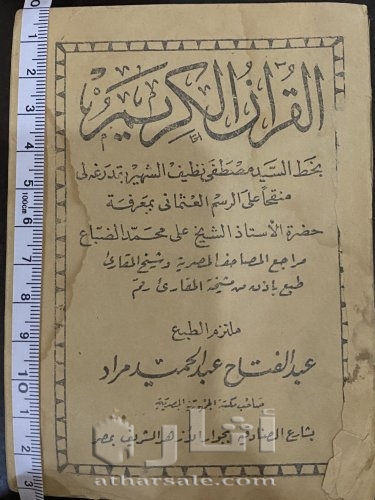 القرآن الكريم
بخط السيد مصطفى نظيف الشهير بقدرغه لى
منقحاً على الرسم العثمانى بمعرفة
حضرة الأستاذ الشيخ على محمد الضباع
مراجع المصاحف المصرية وشيخ المقارئ
طبع بإذن من مشيخة المقارئ رقم
ملتزم الطبع
عبد الفتاح عبد الحميد مراد
صاحب مكتبة الجمهورية المصرية
بشارع الصنادقية بجوار الأزهر الشريف بمصر
أثارة
atharsale.com
0 1 2 3 4 5 6 7 8 9 10
100cm